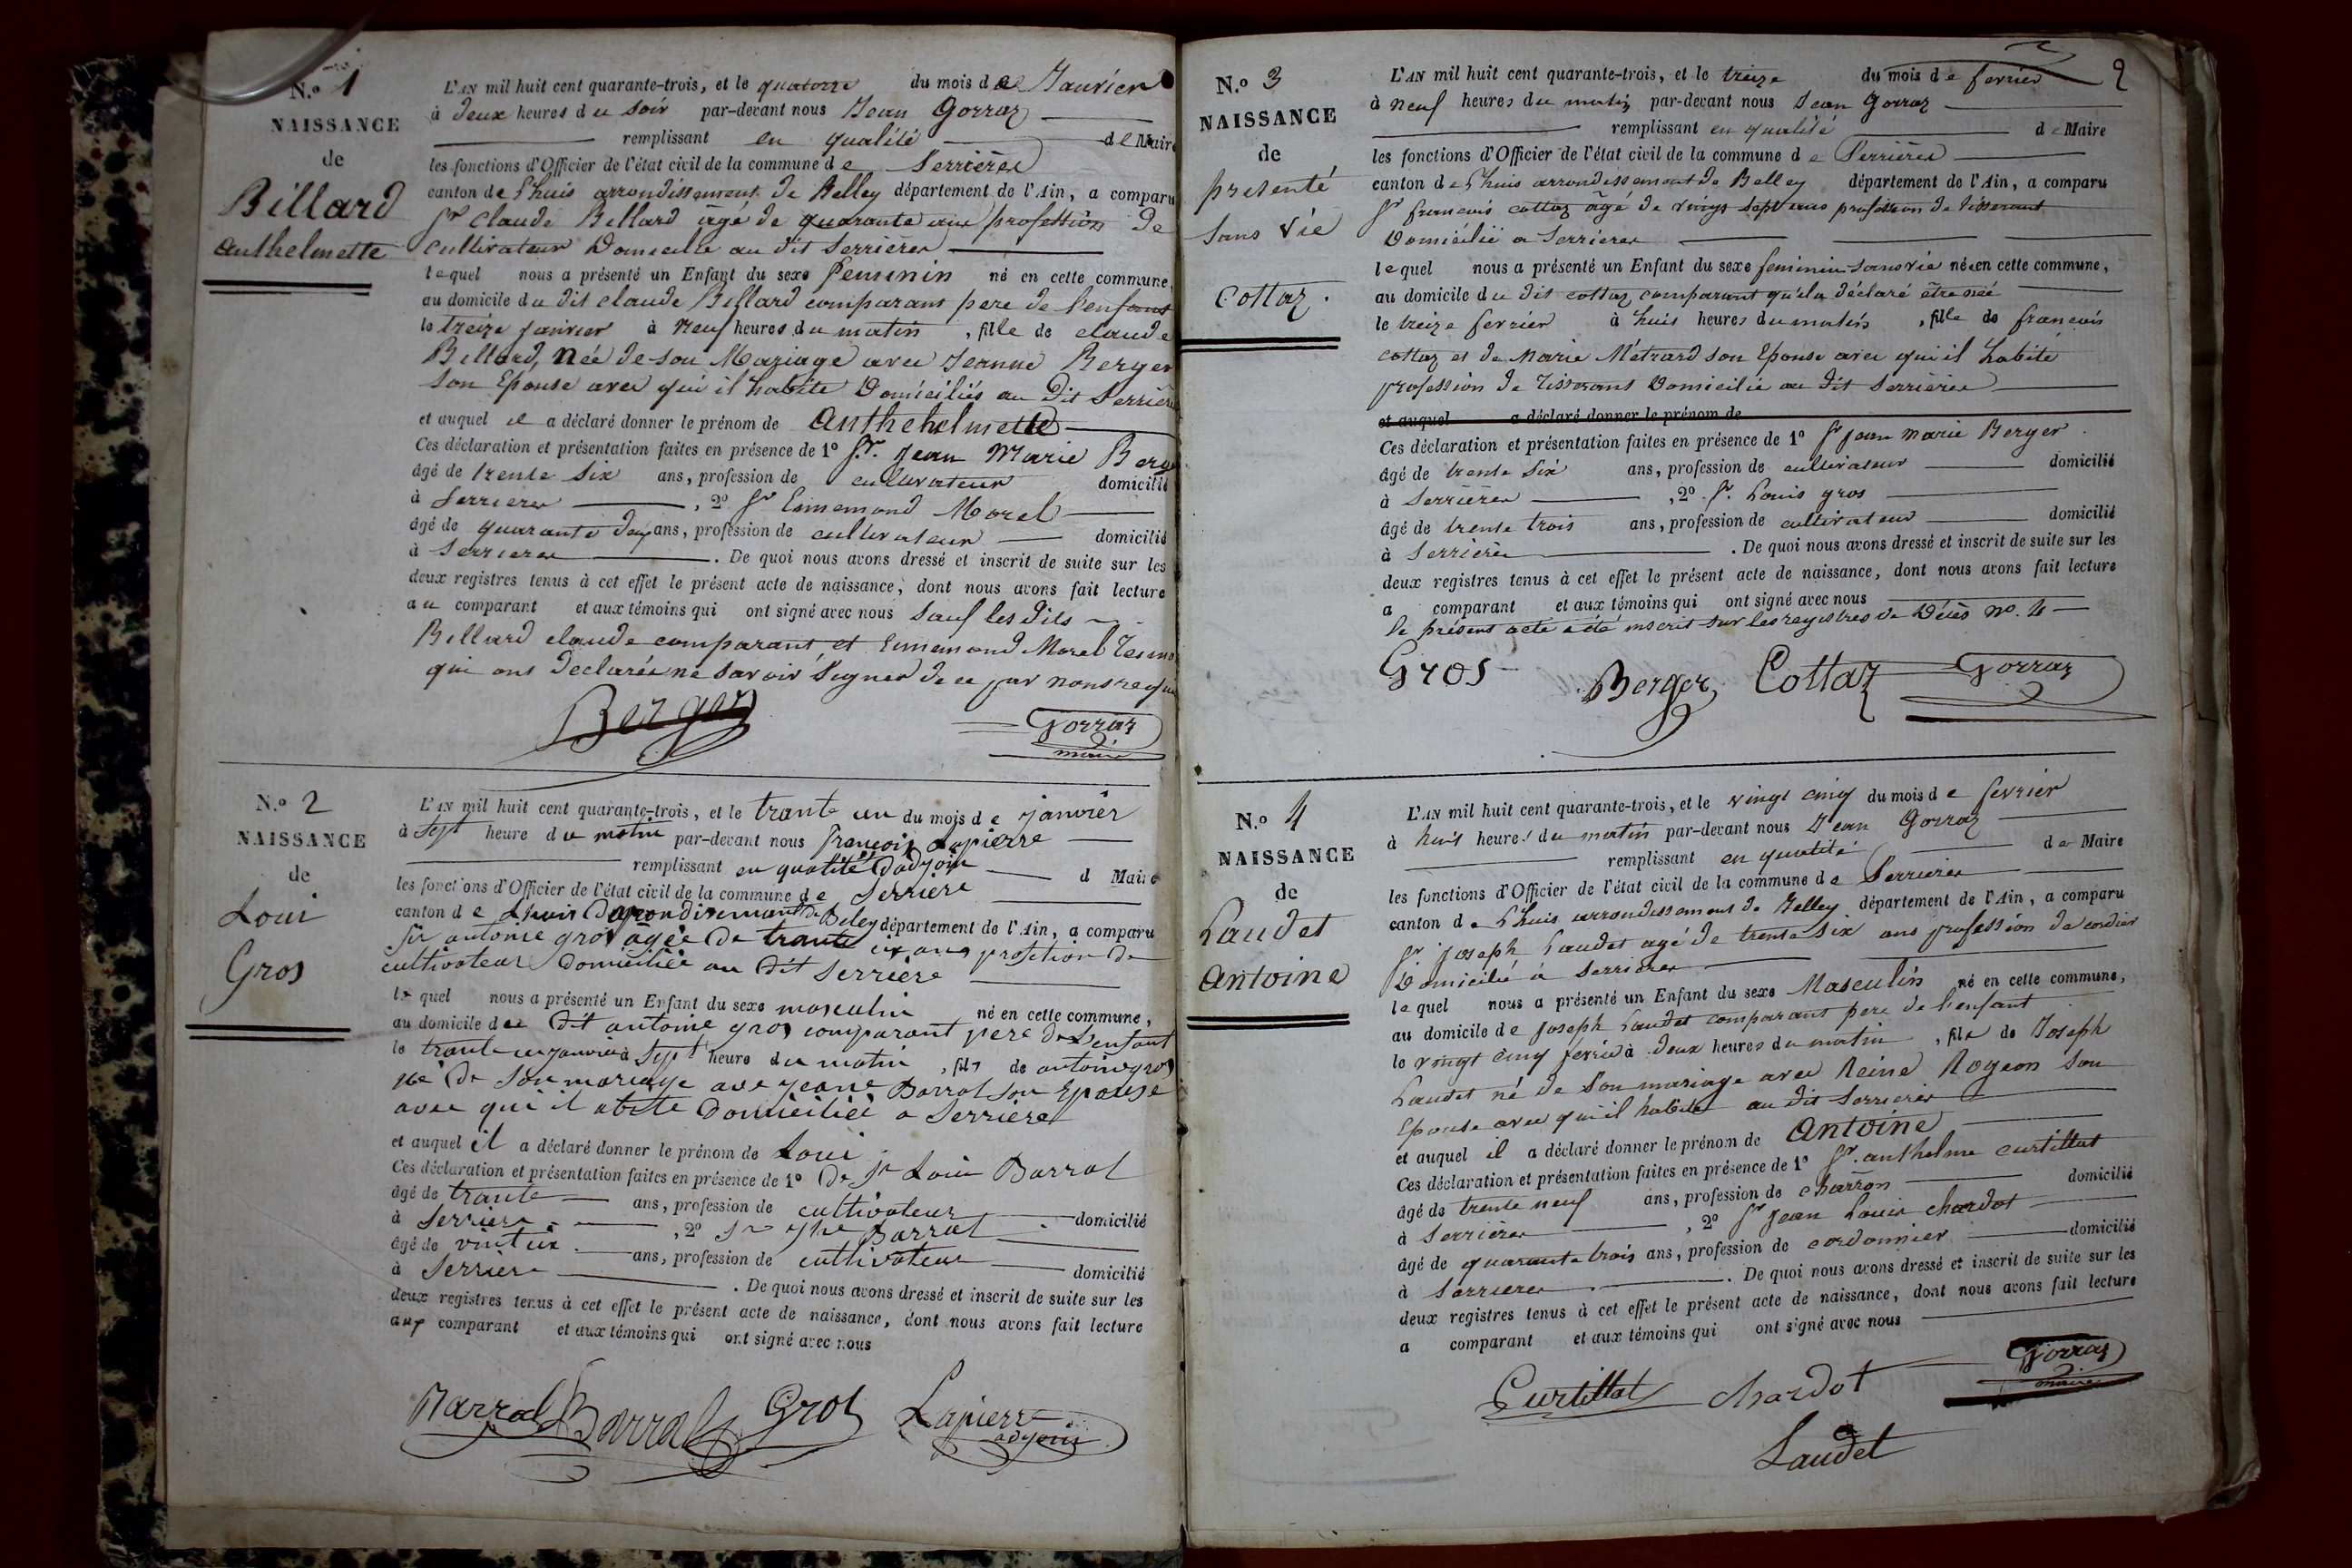 N.º 1
NAISSANCE
de
Billard
Anthelmette
L'AN mil huit cent quarante-trois, et le quatorze du mois de Janvier
à deux heures du soir par-devant nous Jean Gorraz
remplissant en qualité de Maire
les fonctions d'Officier de l'état civil de la commune de Serrières
canton de Lhuis arrondissement de Belley département de l'Ain, a comparu
Sr Claude Billard âgé de quarante ans profession de
Cultivateur Domicilié au dit Serrieres
lequel nous a présenté un Enfant du sexe feminin né en cette commune,
au domicile du dit claude Billard comparant pere de l'enfant
le treize janvier à neuf heures du matin, fille de claude
Billard, Née de son Mariage avec Jeanne Berger
son Epouse avec qui il habite Domiciliés au dit Serrieres
et auquel il a déclaré donner le prénom de Anthehelmette
Ces déclaration et présentation faites en présence de 1º Sr. Jean Marie Berger
âgé de trente six ans, profession de cultivateur domicilié
à Serrieres, 2º Sr Ennemond Morel
âgé de quarante deux ans, profession de cultivateur domicilié
à Serrieres. De quoi nous avons dressé et inscrit de suite sur les
deux registres tenus à cet effet le présent acte de naissance, dont nous avons fait lecture
au comparant et aux témoins qui ont signé avec nous sauf les dits
Billard claude comparant, et Ennemond Morel
qui ont declarés ne savoir signer de ce par nous requis
Berger
Gorraz
maire
N.º 2
NAISSANCE
de
Loui
Gros
L'AN mil huit cent quarante-trois, et le trante un du mois de janvier
à sept heure du matin par-devant nous françois Lapierre
remplissant en qualité dadjoin d Maire
les fonctions d'Officier de l'état civil de la commune de Serriere
canton de Lhuis département de l'Ain, a comparu
Sr antoine gros âgée de trante ans profetion de
cultivateur domiciliée au dit Serriere
lequel nous a présenté un Enfant du sexe masculin né en cette commune,
au domicile du dit antoine gros comparant pere de l'enfant
le trante un janvier à sept heure du matin, fils de antoine gros
né de son mariage ave jeane Barral son Epouse
avec qui il abite domiciliéé a Serriere
et auquel il a déclaré donner le prénom de Loui
Ces déclaration et présentation faites en présence de 1º de Sr Loui Barral
âgé de trante ans, profession de cultivateur domicilié
à Serriere, 2º Sr Barral
âgé de ans, profession de cultivateur domicilié
à Serriere. De quoi nous avons dressé et inscrit de suite sur les
deux registres tenus à cet effet le présent acte de naissance, dont nous avons fait lecture
aux comparant et aux témoins qui ont signé avec nous
Barral Barral Gros Lapierre
adjoin
2
N.º 3
NAISSANCE
de
présenté
Sans Vie
Cottaz.
L'AN mil huit cent quarante-trois, et le treize du mois de fevrier
à neuf heures du matin par-devant nous Jean Gorraz
remplissant en qualité de Maire
les fonctions d'Officier de l'état civil de la commune de Serrieres
canton de Lhuis arrondissement de Belley département de l'Ain, a comparu
Sr francois cottaz âgé de vingt sept ans profession de tisserant
Domicilié a Serrieres
lequel nous a présenté un Enfant du sexe feminin sans vie née en cette commune,
au domicile du dit cottaz comparant qu'il a déclaré être née
le treize fevrier à huit heures du matin, fille de francois
cottaz et de Marie Métrard son Epouse avec qui il habite
profession de Tisserant Domicilié au dit Serrieres
et auquel a déclaré donner le prénom de
Ces déclaration et présentation faites en présence de 1º Sr jean marie Berger
âgé de trente six ans, profession de cultivateur domicilié
à Serrieres, 2º Sr. Louis gros
âgé de trente trois ans, profession de cultivateur domicilié
à Serrieres. De quoi nous avons dressé et inscrit de suite sur les
deux registres tenus à cet effet le présent acte de naissance, dont nous avons fait lecture
a comparant et aux témoins qui ont signé avec nous
le présent acte a été inscrit sur les registres de Décès no. 4
Gros Berger Cottaz Gorraz
N.º 4
NAISSANCE
de
Laudet
Antoine
L'AN mil huit cent quarante-trois, et le vingt cinq du mois de fevrier
à huit heures du matin par-devant nous Jean Gorraz
remplissant en qualité de Maire
les fonctions d'Officier de l'état civil de la commune de Serrieres
canton de Lhuis arrondissement de Belley département de l'Ain, a comparu
Sr joseph Laudet agé de trente six ans profession de cordier
Domicilié à Serrieres
lequel nous a présenté un Enfant du sexe Masculin né en cette commune,
au domicile de joseph Laudet comparant pere de l'enfant
le vingt cinq fevrier à deux heures du matin, fils de Joseph
Laudet né de son mariage avec Reine Rogeon son
Epouse avec qu'il habite au dit Serrieres
et auquel il a déclaré donner le prénom de Antoine
Ces déclaration et présentation faites en présence de 1º Sr. anthelme Curtillat
âgé de trente neuf ans, profession de charron domicilié
à Serrieres, 2º Sr jean Louis chardot
âgé de quarante trois ans, profession de cordonnier domicilié
à Serrieres. De quoi nous avons dressé et inscrit de suite sur les
deux registres tenus à cet effet le présent acte de naissance, dont nous avons fait lecture
a comparant et aux témoins qui ont signé avec nous
Curtillat chardot Gorraz
maire
Laudet